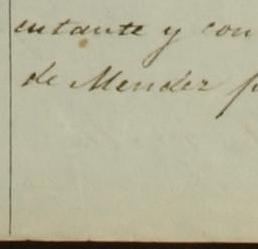 entante y con
de Mendez p